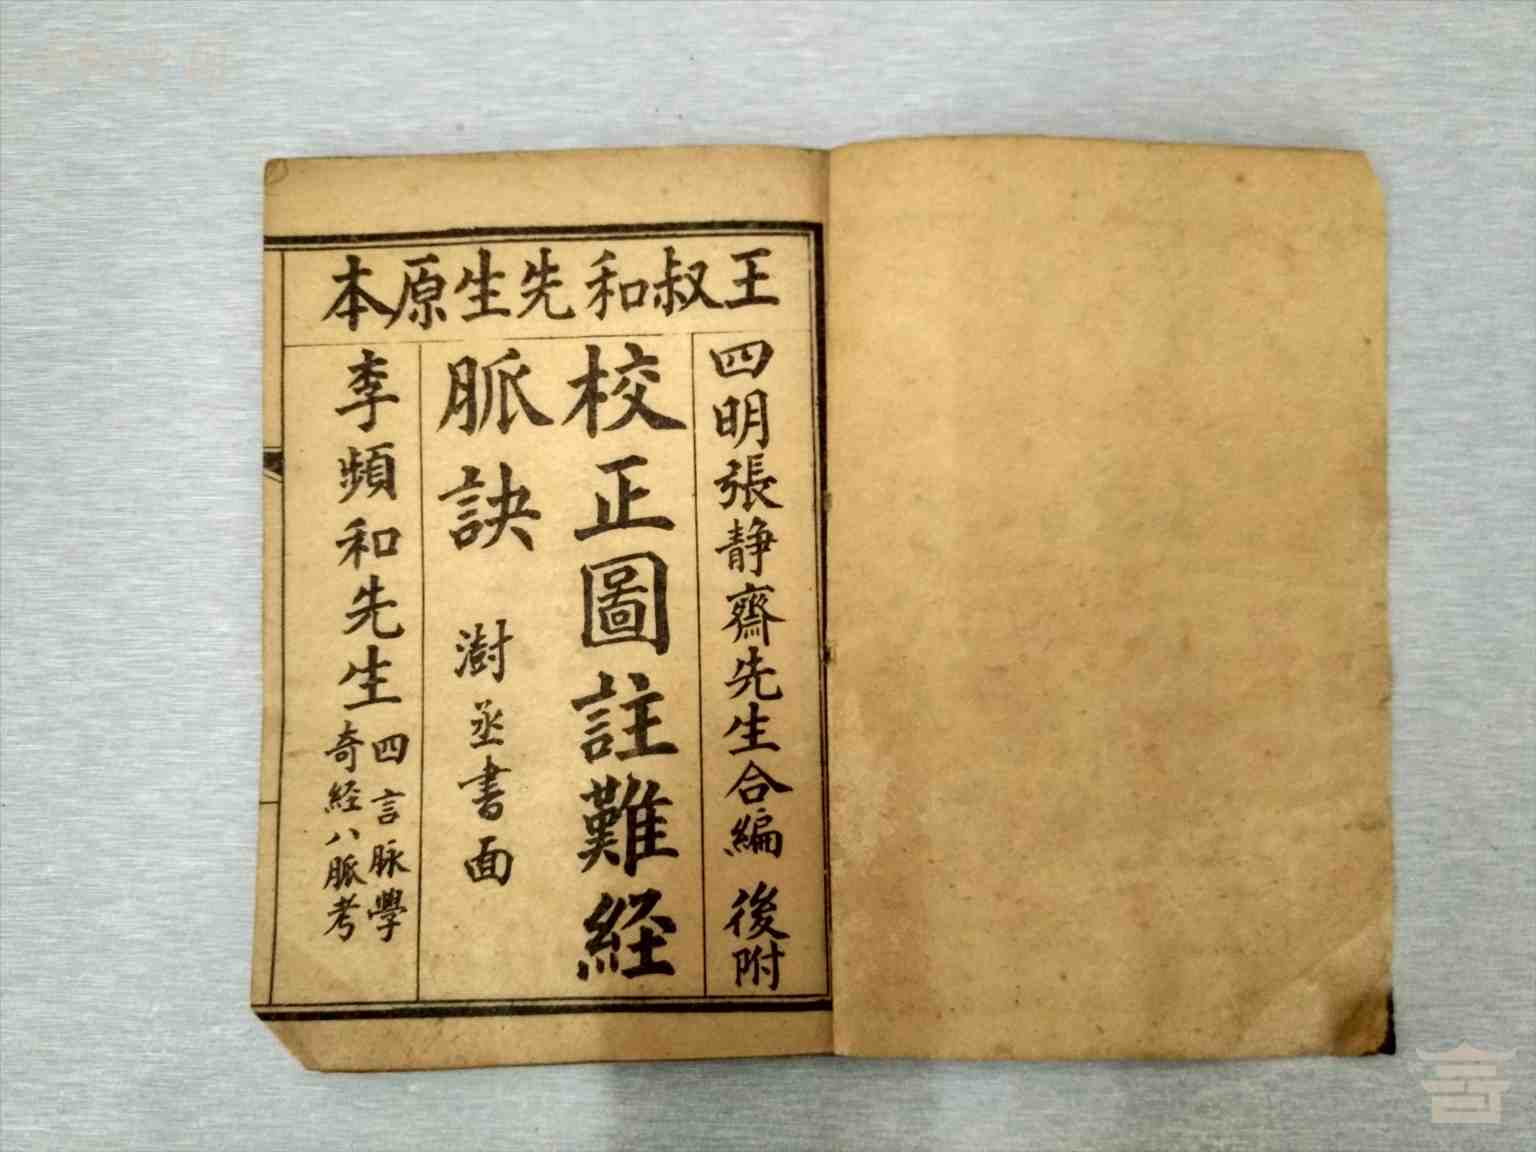 王叔和先生原本
四明張静齋先生合編 後附
校正圖註難経
脈訣 澍丞書面
李頻和先生
四言脉學
奇経八脈考